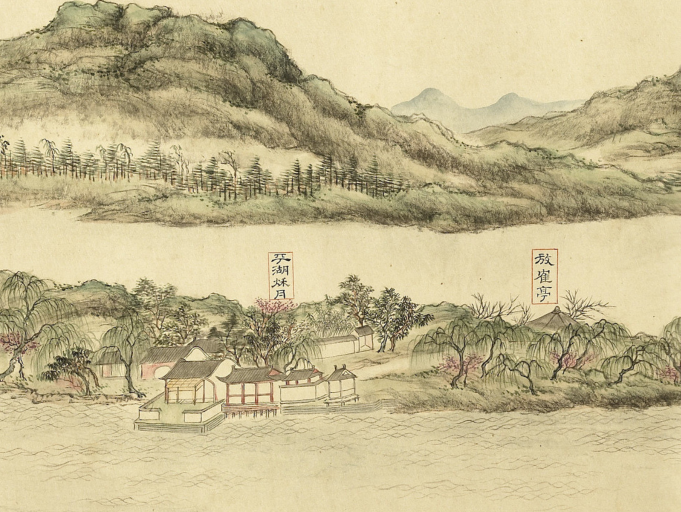 放隺亭
平湖秋月